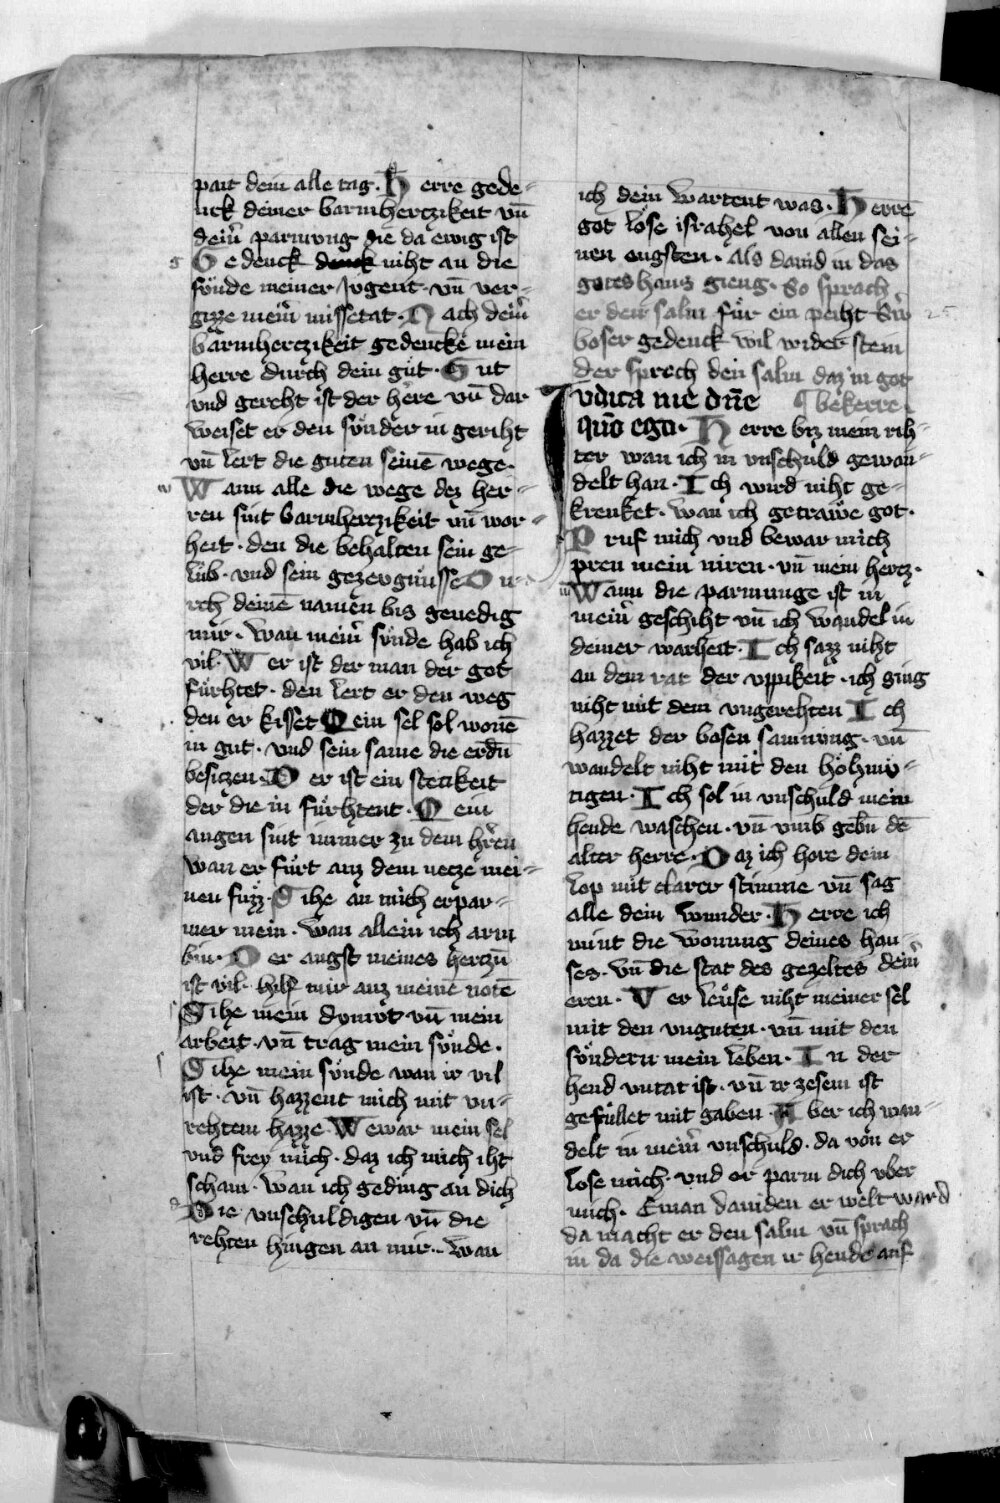 pait dein alle tag. Herre gede-
nck deiner barmherczikeit vn̄
dein̄ parmvng die da ewig ist
Gedenck denck niht an die
sv̈nde meiner Jvgent. vn̄ ver-
gizze mein̄ missetat. Nach dein̄
barmherczikeit gedencke mein
herre durch dein gůt. Gut
vnd gereht ist der herre vn̄ dar
weiset er den sv̈nder in geriht
vn̄ lert die guten seinē wege.
Wann alle die wege dez her-
ren sint barmherczikeit vn̄ wor-
heit. den die behalten sein ge-
lüb. vnd sein gezevgnüsse Du-
rch deinē namen bis genedig
mir. wan mein̄ sv̈nde hab ich
vil. Wer ist der man der got
fürhtet. den lert er den weg
den er kisset Sein sel sol wonē
in gut. vnd sein same die erdn̄
besiczen. Der ist ein stetikeit
der die in fürhtent. Mein
augen sint immer zu dem hr̄en
wan er fürt auz dem necze mei-
nen fuzz. Sihe an mich erpar-
mer mein. wan allein ich arm
bin. Der angst meines herczn̄
ist vil. hilf mir auz meinē nötē
Sihe mein dymvt vn̄ mein
arbeit. vn̄ trag mein sv̈nde.
Sihe mein sv̈nde wan ir vil
ist. vn̄ hazzent mich mit vn-
rehtem hazze Bewar mein sel
vnd frey mich. daz ich mich iht
scham. wan ich geding an dich
Die vnschuldigen vn̄ die
rehten hingen an mir. Wan
ich dein wartent was. Herrē
got löse israhel von allen sei-
nen engsten. Als dauid in das
goteshaus gieng. So sprach
er den salm für ein peiht Swˢ
boser gedenck wil widersten
der sprech den salm daz in got
Judica me dn̄e ¶ bekerre.
qm̄ ego. Herre biz mein rih-
ter wan ich in vnschuld gewan-
delt han. Ich wird niht ge-
krenket. wan ich getrawe got.
Pruf mich vnd bewar mich
pren mein niren. vn̄ mein hercz.
Wann die parmunge ist in
mein̄ gesiht vn̄ ich wandel in
deiner warheit. Ich sazz niht
an dem rat der vppikeit. ich ging
niht mit dem vngerehten Ich
hazzet der bosen samnvng. vn̄
wandelt niht mit den höhmv̈-
tigen. Ich sol in vnschuld mein
hende waschen. vn̄ vmb gebn̄ dē
alter herre. Daz ich hore dein
lop mit clarer stimme vn̄ sag
alle dein wunder. Herre ich
mint die wonung deines hau-
ses. vn̄ die stat des gezeltes dein̄
eren. Verleuse niht meiner sel
mit den vnguten. vn̄ mit den
sv̈ndern mein leben. In der
hend vntat ist. vn̄ ir zesem ist
gefüllet mit gaben. Aber ich wan-
delt in mein̄ vnschuld. da von er
lose mich. vnd er parm dich vber
mich. Eman dauiden er welt ward
da macht er den salm vn̄ sprach
in da die weissagen ir hende auf